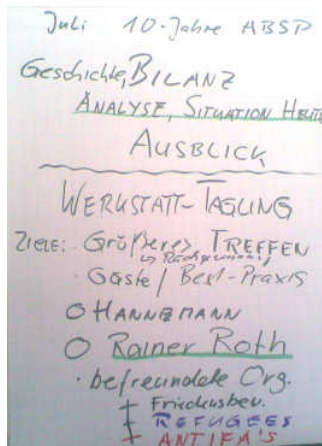 Juli 10-Jahre ABSP
Geschichte, BILANZ
ANALYSE, SITUATION HEUTE
AUSBLICK
WERKSTATT-TAGUNG
ZIELE: - Größeres TREFFEN
· Gäste / Best-Praxis
O HANNEMANN
O Rainer Roth
· befreundete Org.
+ Friedensbew.
+ REFUGEES
+ ANTIFA'S